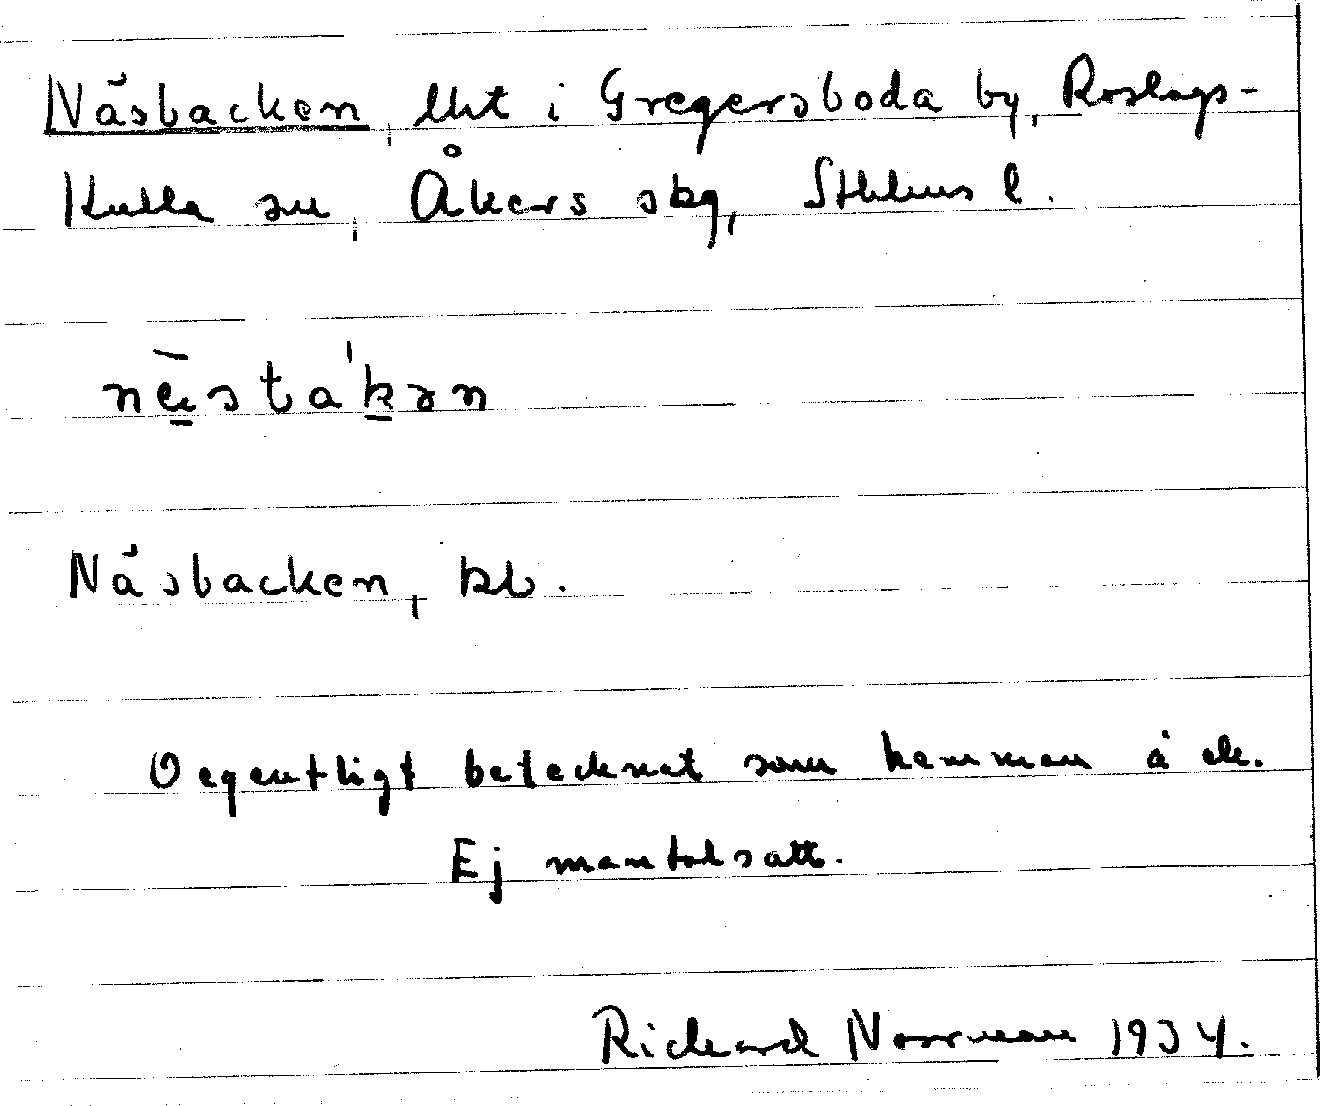 Näsbacken, lht i Gregersboda by, Roslags-
Kulla sn, Åkers skg, Sthlms l.
Näsbacken, kb.
Oegentligt betecknat som hemman å ek.
Ej mantalsatt.
Rickard Norrman 1934.